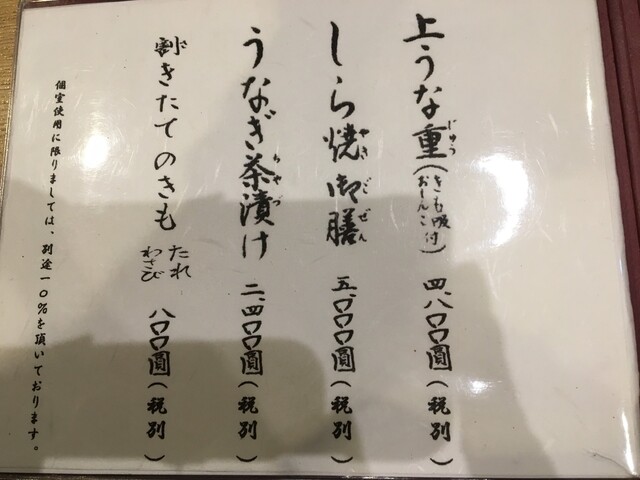 上うな重(きも吸付 おしんこ) 四、八〇〇圓(税別)
じゅう
しら焼御膳 五、〇〇〇圓(税別)
やきごぜん
うなぎ茶漬け 二、四〇〇圓(税別)
ちゃづ
割きたてのきも たれ わさび 八〇〇圓(税別)
個室使用に限りましては、別途一〇%を頂いております。